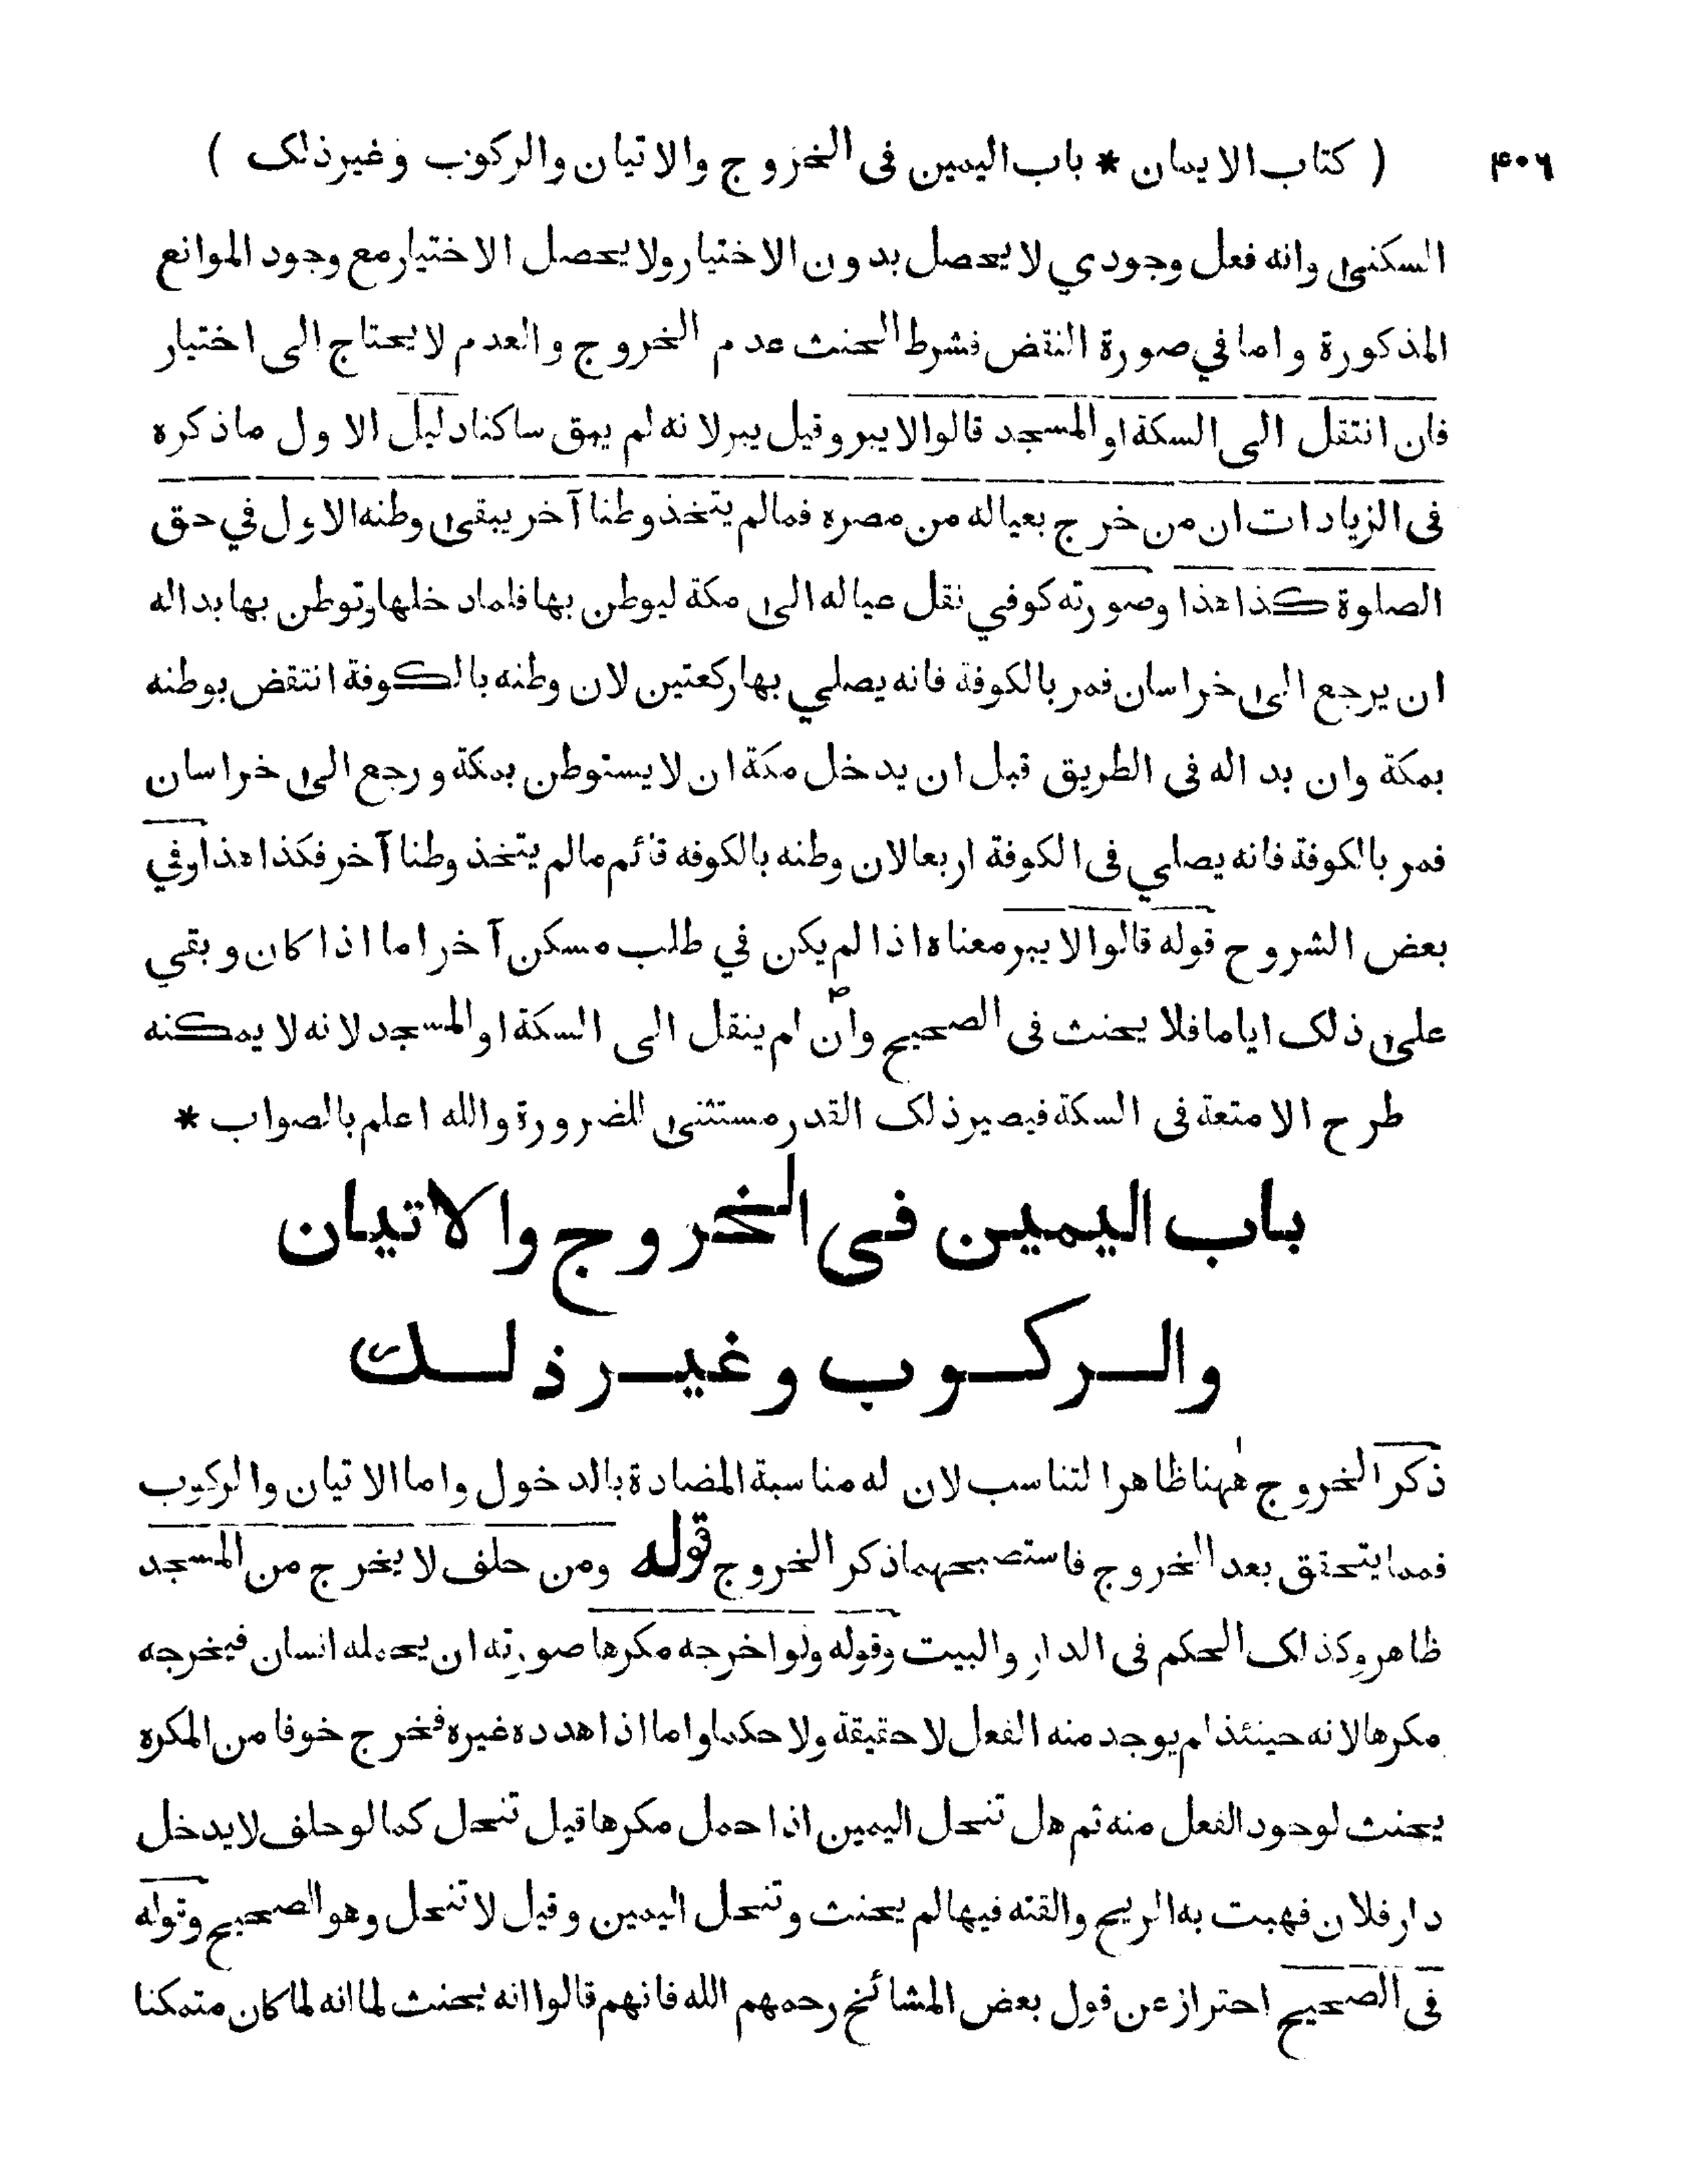 ۴۰۶ ( كتاب الايمان * باب اليمين فى الخروج والاتيان والركوب وغيرذلك )
السكنى وانه فعل وجودي لا يحصل بدون الاختيار ولا يحصل الاختيار مع وجود الموانع
المذكورة واما في صورة النقض فشرط الحنث عدم الخروج والعدم لا يحتاج الى اختيار
فان انتقل الى السكة او المسجد قالوا لا يبر وقيل يبر لانه لم يبق ساكنا دليل الاول ماذكره
فى الزيادات ان من خرج بعياله من مصره فمالم يتخذ وطنا آخر يبقى وطنه الاول في حق
الصلوة كذا هذا وصورته كوفي نقل عياله الى مكة ليوطن بها فلماد خلها وتوطن بها بداله
ان يرجع الى خراسان فمر بالكوفة فانه يصلي بها ركعتين لان وطنه بالكوفة انتقض بوطنه
بمكة وان بد اله فى الطريق قبل ان يدخل مكة ان لا يستوطن بمكة ورجع الى خراسان
فمر بالكوفة فانه يصلي فى الكوفة اربعا لان وطنه بالكوفه قائم مالم يتخذ وطنا آخر فكذا هذا وفي
بعض الشروح قوله قالوا لا يبر معناه اذا لم يكن في طلب مسكن آخر اما اذا كان وبقي
على ذلك اياما فلا يحنث فى الصحيح وان لم ينقل الى السكة او المسجد لانه لا يمكنه
طرح الامتعة فى السكة فيصير ذلك القدر مستثنى للضرورة والله اعلم بالصواب *
باب اليمين فى الخروج والاتيان
والركوب وغير ذلك
ذكر الخروج ههنا ظاهرا لتناسب لان له مناسبة المضادة بالدخول واما الاتيان والركوب
فمما يتحقق بعد الخروج فاستصحبهما ذكر الخروج قوله ومن حلف لا يخرج من المسجد
ظاهر وكذلك الحكم فى الدار والبيت وقوله ولو اخرجه مكرها صورته ان يحمله انسان فيخرجه
مكرها لانه حينئذ لم يوجد منه الفعل لا حقيقة ولا حكما واما اذا هدده غيره فخرج خوفا من المكره
يحنث لوجود الفعل منه ثم هل تنحل اليمين اذا حمل مكرها قيل تنحل كما لو حلف لا يدخل
دار فلان فهبت به الريح والقته فيها لم يحنث وتنحل اليمين وقيل لا تنحل وهو الصحيح وقوله
فى الصحيح احتراز عن قول بعض المشائخ رحمهم الله فانهم قالوا انه يحنث لما انه لما كان متمكنا